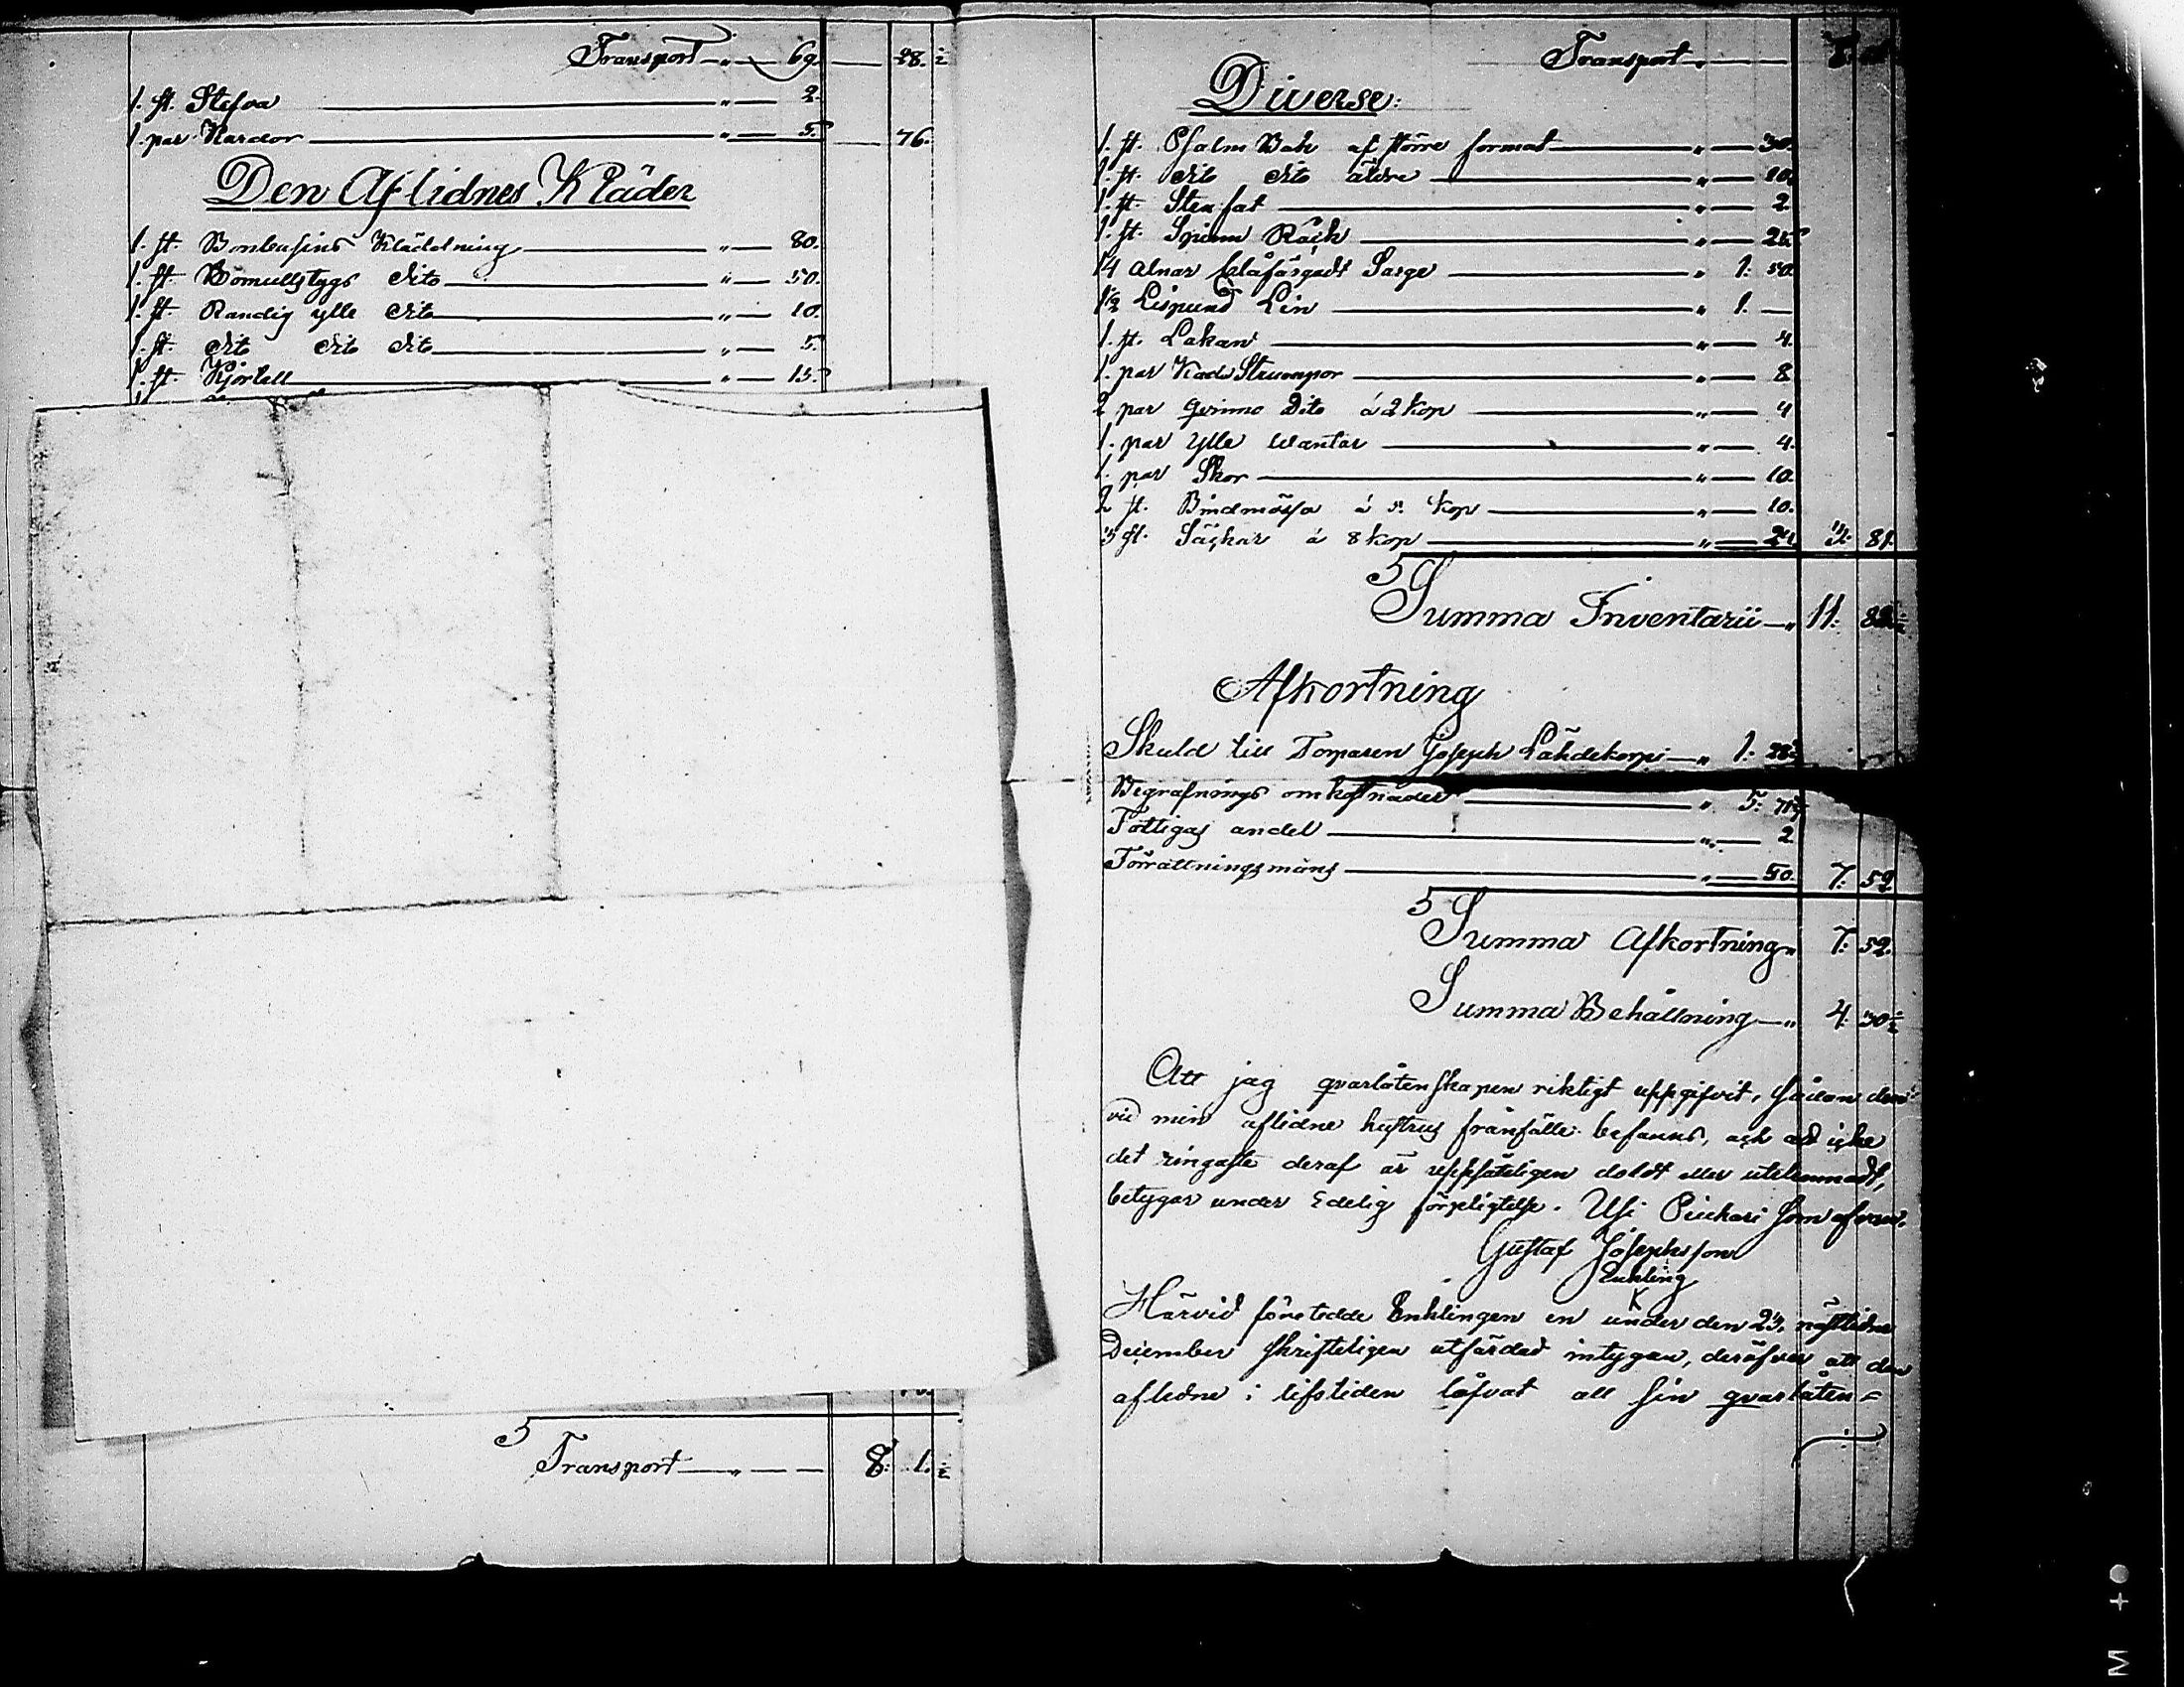 Transport „ — 69. — 28. ½
1. st. Stefva „ — 2.
1. par Kardor „ — 5. — 76.
Den Aflidnes Kläder
1. st. Bombasins Klädning „ — 80.
1. st. Bomullstygs dito „ — 50.
1. st. Randig ylle dito „ — 10.
1. st. dito dito dito „ — 5.
1. st. Kjortell „ — 15.
Transport „ — — 8. 1. ½
Transport „ —
Diverse:
1. st. Psalm Bok af större format „ — 30.
1. st. dito dito äldre „ — 10.
1. st. Sten fat „ — 2.
1. st. Spinn Råck „ — 25.
14 alnar blåfärgadt Sarge „ 1. 50.
1½ Lispund Lin „ 1. —
1. st. Lakan „ — 4.
1. par Strumpor „ — 8.
2 par dito á 2 kop „ — 4
1. par ylle wantar „ — 4.
1. par Skor „ — 10.
2 st. Bindmössa á 5 kop „ — 10.
3 st. Säckar á 8 kop „ — 24. 3. 81.
Summa Inventarii „ 11. 82½
Afkortning
Skuld till Torparen Joseph Lähdekorpi „ 1. 28½
Begrafnings omkostnader „ 5. 71½
Fattigas andel „ — 2.
Förrättningsmäns „ — 50. 7. 52.
Summa Afkortning „ 7. 52.
Summa Behållning „ 4. 30½
Att jag qvarlåtenskapen riktigt uppgifvit, sådan den
vid min aflidne hustrus frånfälle befanns, och att icke
det ringaste deraf är uppsåteligen doldt eller utelemnadt,
betygar under Edelig förpligtelse. Usi Piukari som ofvan.
Gustaf Josephsson
Enkling
Härvid företedde Enklingen en under den 23. nästlidne
December skrifteligen utfärdad intygan, deröfver att den
aflidne i lifstiden låfvat all sin qvarlåten=